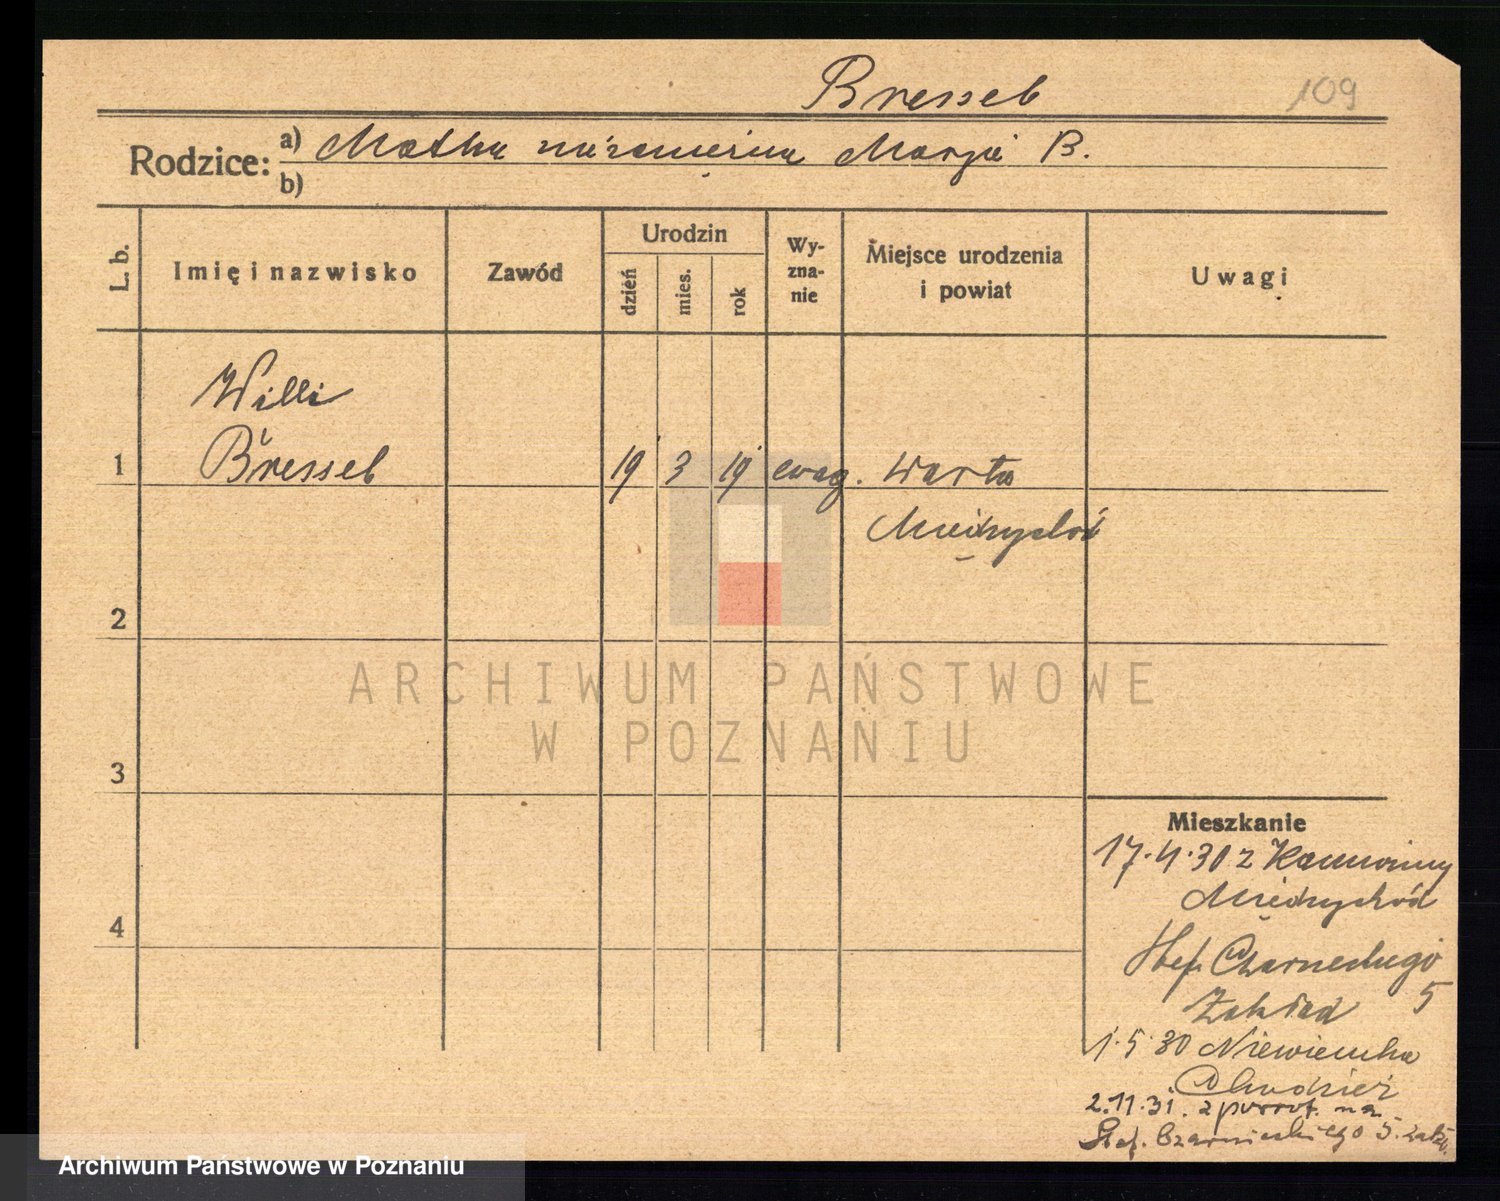 Bressel
109
Rodzice: a) Matka niezamężna Marja B.
b)
L. b.
Imię i nazwisko
Zawód
Urodzin
dzień
mies.
rok
Wy-
zna-
nie
Miejsce urodzenia
i powiat
Uwagi
Willi
1 Bressel 19 3 19 ewag. Warta
Międzychód
2
3
4
Mieszkanie
17.4.30 z
Międzychód
Stef. Czarneckiego
Zakład 5
1.5.30 Niewiemka
Chodzież
2.11.31. z powrot. na
Stef. Czarnieckiego 5. zakł.
ARCHIWUM PAŃSTWOWE
W POZNANIU
Archiwum Państwowe w Poznaniu